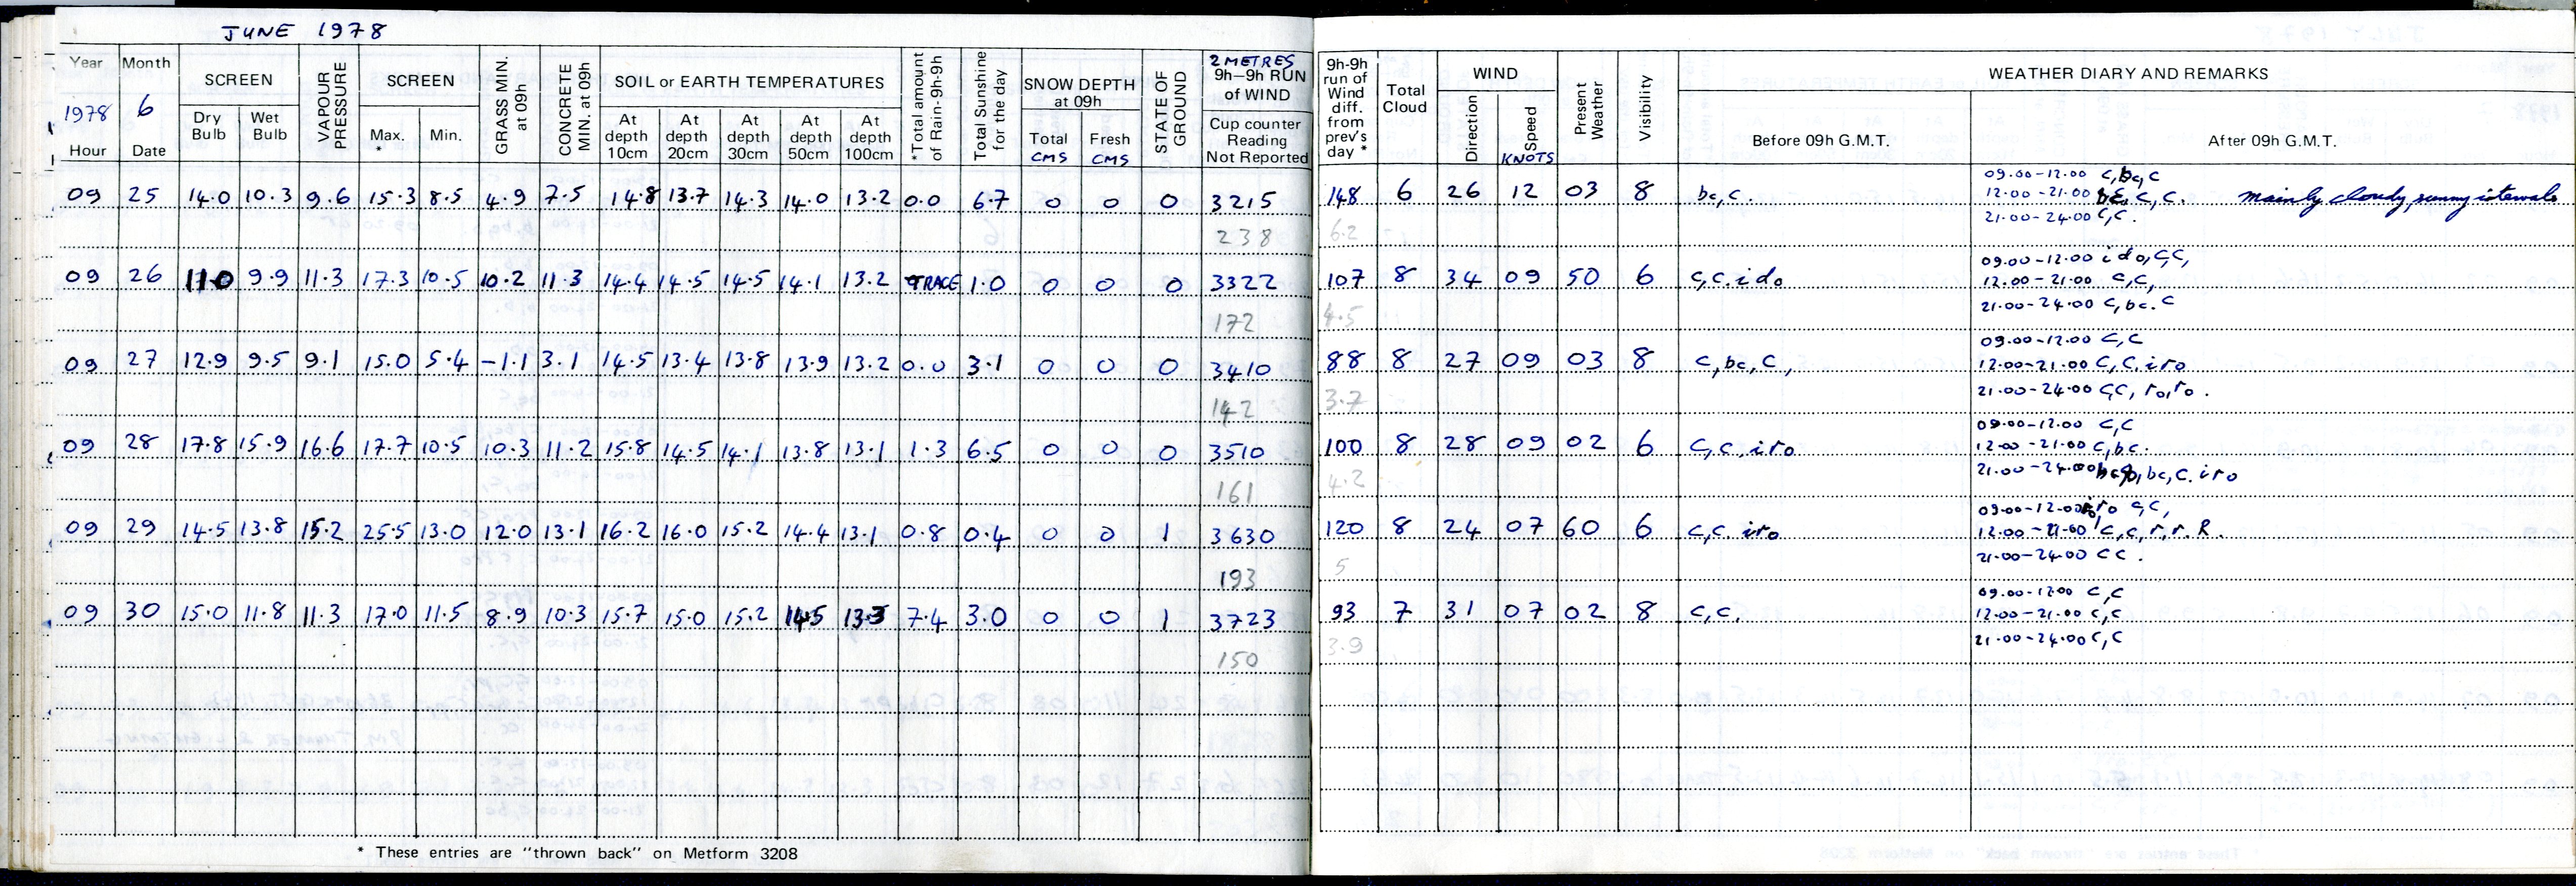 JUNE 1978
Year Month SCREEN VAPOUR PRESSURE SCREEN GRASS MIN. at 09h CONCRETE MIN. at 09h SOIL or EARTH TEMPERATURES *Total amount of Rain-9h-9h Total Sunshine for the day SNOW DEPTH at 09h STATE OF GROUND 2 METRES 9h-9h RUN of WIND 9h-9h run of Wind diff. from prev's day * Total Cloud WIND Present Weather Visibility WEATHER DIARY AND REMARKS
1978 6 Dry Bulb Wet Bulb Max. * Min. At depth 10cm At depth 20cm At depth 30cm At depth 50cm At depth 100cm Total CMS Fresh CMS Cup counter Reading Not Reported Direction Speed KNOTS Before 09h G.M.T. After 09h G.M.T.
Hour Date
09.00-12.00 c,bc,c
09 25 14.0 10.3 9.6 15.3 8.5 4.9 7.5 14.8 13.7 14.3 14.0 13.2 0.0 6.7 0 0 0 3215 148 6 26 12 03 8 bc,c. 12.00-21.00 bc, c, c. mainly cloudy, sunny intervals
21.00-24.00 c,c.
238 6.2
09.00-12.00 ido, c,c,
09 26 11.0 9.9 11.3 17.3 10.5 10.2 11.3 14.4 14.5 14.5 14.1 13.2 TRACE 1.0 0 0 0 3322 107 8 34 09 50 6 c,c.ido 12.00-21.00 c,c,
21.00-24.00 c,bc.c
172 4.5
09.00-12.00 c,c
09 27 12.9 9.5 9.1 15.0 5.4 -1.1 3.1 14.5 13.4 13.8 13.9 13.2 0.0 3.1 0 0 0 3410 88 8 27 09 03 8 c,bc,c, 12.00-21.00 c,c.iro
21.00-24.00 c,c, ro,ro.
142 3.7
09.00-12.00 c,c
09 28 17.8 15.9 16.6 17.7 10.5 10.3 11.2 15.8 14.5 14.1 13.8 13.1 1.3 6.5 0 0 0 3510 100 8 28 09 02 6 c,c.iro 12.00-21.00 c,bc.
21.00-24.00 bc, c.iro
161 4.2
09.00-12.00 c,c,
09 29 14.5 13.8 15.2 25.5 13.0 12.0 13.1 16.2 16.0 15.2 14.4 13.1 0.8 0.4 0 0 1 3630 120 8 24 07 60 6 c,c.iro 12.00-21.00 c,c,r,r.R.
21.00-24.00 cc.
193 5
09.00-12.00 c,c
09 30 15.0 11.8 11.3 17.0 11.5 8.9 10.3 15.7 15.0 15.2 14.5 13.3 7.4 3.0 0 0 1 3723 93 7 31 07 02 8 c,c. 12.00-21.00 c,c
21.00-24.00 c,c
150 3.9
* These entries are "thrown back" on Metform 3208